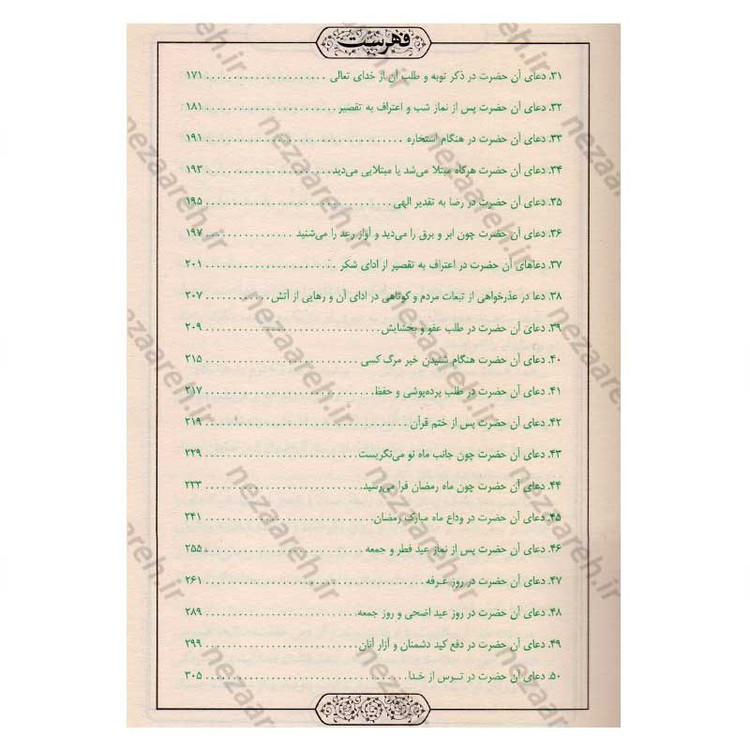 فهرست
۳۱. دعای آن حضرت در ذکر توبه و طلب آن از خدای تعالی ..................... ۱۷۱
۳۲. دعای آن حضرت پس از نماز شب و اعتراف به تقصیر ..................... ۱۸۱
۳۳. دعای آن حضرت در هنگام استخاره ..................... ۱۹۱
۳۴. دعای آن حضرت هرگاه مبتلا می‌شد یا مبتلایی می‌دید ..................... ۱۹۳
۳۵. دعای آن حضرت در رضا به تقدیر الهی ..................... ۱۹۵
۳۶. دعای آن حضرت چون ابر و برق را می‌دید و آواز رعد را می‌شنید ..................... ۱۹۷
۳۷. دعاهای آن حضرت در اعتراف به تقصیر از ادای شکر ..................... ۲۰۱
۳۸. دعا در عذرخواهی از تبعات مردم و کوتاهی در ادای آن و رهایی از آتش ............ ۲۰۷
۳۹. دعای آن حضرت در طلب عفو و بخشایش ..................... ۲۰۹
۴۰. دعای آن حضرت هنگام شنیدن خبر مرگ کسی ..................... ۲۱۵
۴۱. دعای آن حضرت در طلب پرده‌پوشی و حفظ ..................... ۲۱۷
۴۲. دعای آن حضرت پس از ختم قرآن ..................... ۲۱۹
۴۳. دعای آن حضرت چون جانب ماه نو می‌نگریست ..................... ۲۲۹
۴۴. دعای آن حضرت چون ماه رمضان فرا می‌رسید ..................... ۲۳۳
۴۵. دعای آن حضرت در وداع ماه مبارک رمضان ..................... ۲۴۱
۴۶. دعای آن حضرت پس از نماز عید فطر و جمعه ..................... ۲۵۵
۴۷. دعای آن حضرت در روز عرفه ..................... ۲۶۱
۴۸. دعای آن حضرت در روز عید اضحی و روز جمعه ..................... ۲۸۹
۴۹. دعای آن حضرت در دفع کید دشمنان و آزار آنان ..................... ۲۹۹
۵۰. دعای آن حضرت در ترس از خدا ..................... ۳۰۵
nezaareh.ir